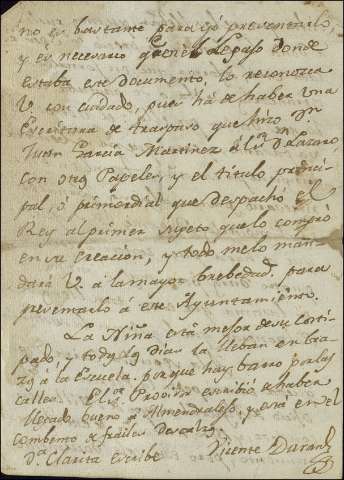 no es bastante para yo presentarlo,
y es necesario que en el Legajo donde
estaba este documento, lo reconozca
V. con cuidado, pues há de haber una
Escritura de traspaso que hizo Dn
Juan Garcia Martinez á Dn Lazaro,
con otros Papeles, y el titulo princi-
pal, ó primordial que despachó el
Rey al primer sugeto que lo compró
en su creacion, y todo melo man-
dará V. á la mayor brebedad para
presentarlo á este Ayuntamiento.
La Niña está mejor de su costi-
pado, y todos los dias la lleban en bra-
zos á la Escuela, porque hay barro por las
calles. El Sr. Provisor escribió de haber
llegado bueno á Almendralejo, y está en el
combento de frailes descalzos.
Da. Clarita escribe
Vicente Durand